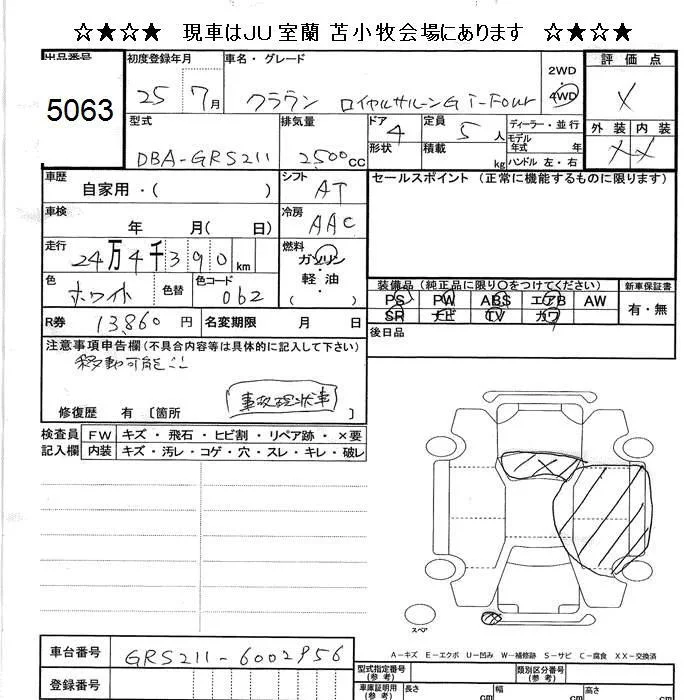 ☆★☆★ 現車はJU室蘭 苫小牧会場にあります ☆★☆★
出品番号
5063
初度登録年月
25 7月
車名・グレード
クラウン ロイヤルサルーンG i-Four
2WD
4WD
評価点
X
型式
DBA-GRS211
排気量
2500cc
ドア 4
形状
定員 5人
積載 kg
ディーラー・並行
モデル年式 年
ハンドル 左・右
外装 内装
X X
車歴
自家用・( )
シフト
AT
セールスポイント (正常に機能するものに限ります)
車検
年 月( 日)
冷房
AAC
走行
24万4千390km
燃料
ガソリン
軽・油
( )
色
ホワイト
色替
色コード
062
装備品(純正品に限り○をつけてください)
PS PW ABS エアB AW
SR ナビ TV カワ
新車保証書
有・無
R券 13,860円
名変期限 月 日
後日品
注意事項申告欄(不具合内容等は具体的に記入して下さい)
移動可能
事故現状車
修復歴 有〔箇所 〕
検査員記入欄
FW キズ・飛石・ヒビ割・リペア跡・×要
内装 キズ・汚レ・コゲ・穴・スレ・キレ・破レ
スペア
A-キズ E-エクボ U-凹み W-補修跡 S-サビ C-腐食 XX-交換済
車台番号
GRS211-6002956
登録番号
型式指定番号(参考)
類別区分番号(参考)
車庫証明用(参考)
長さ cm
幅 cm
高さ cm